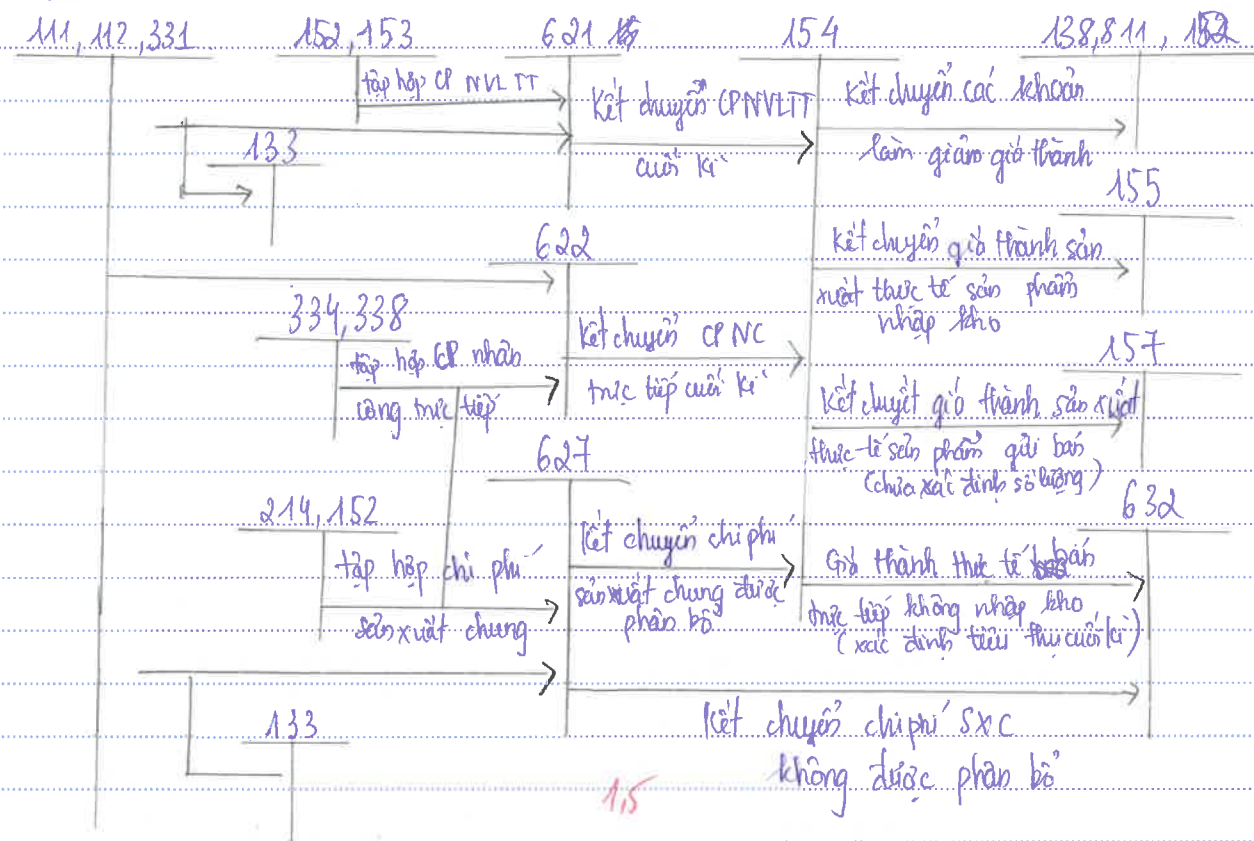 111, 112, 331 152, 153 621 154 138, 811, 152
tập hợp CP NVL TT
Kết chuyển CPNVLTT
cuối kì
Kết chuyển các khoản
làm giảm giá thành
133
155
622
Kết chuyển giá thành sản
xuất thực tế sản phẩm
nhập kho
334, 338
tập hợp CP nhân
công trực tiếp
Kết chuyển CP NC
trực tiếp cuối kì
157
Kết chuyết giá thành sản xuất
thực tế sản phẩm gửi bán
(chưa xác định số lượng)
627
214, 152
tập hợp chi phí
sản xuất chung
Kết chuyển chi phí
sản xuất chung được
phân bổ
632
Giá thành thực tế bán
trực tiếp không nhập kho
(xác định tiêu thụ cuối kì)
133
Kết chuyển chi phí SXC
không được phân bổ
1,5